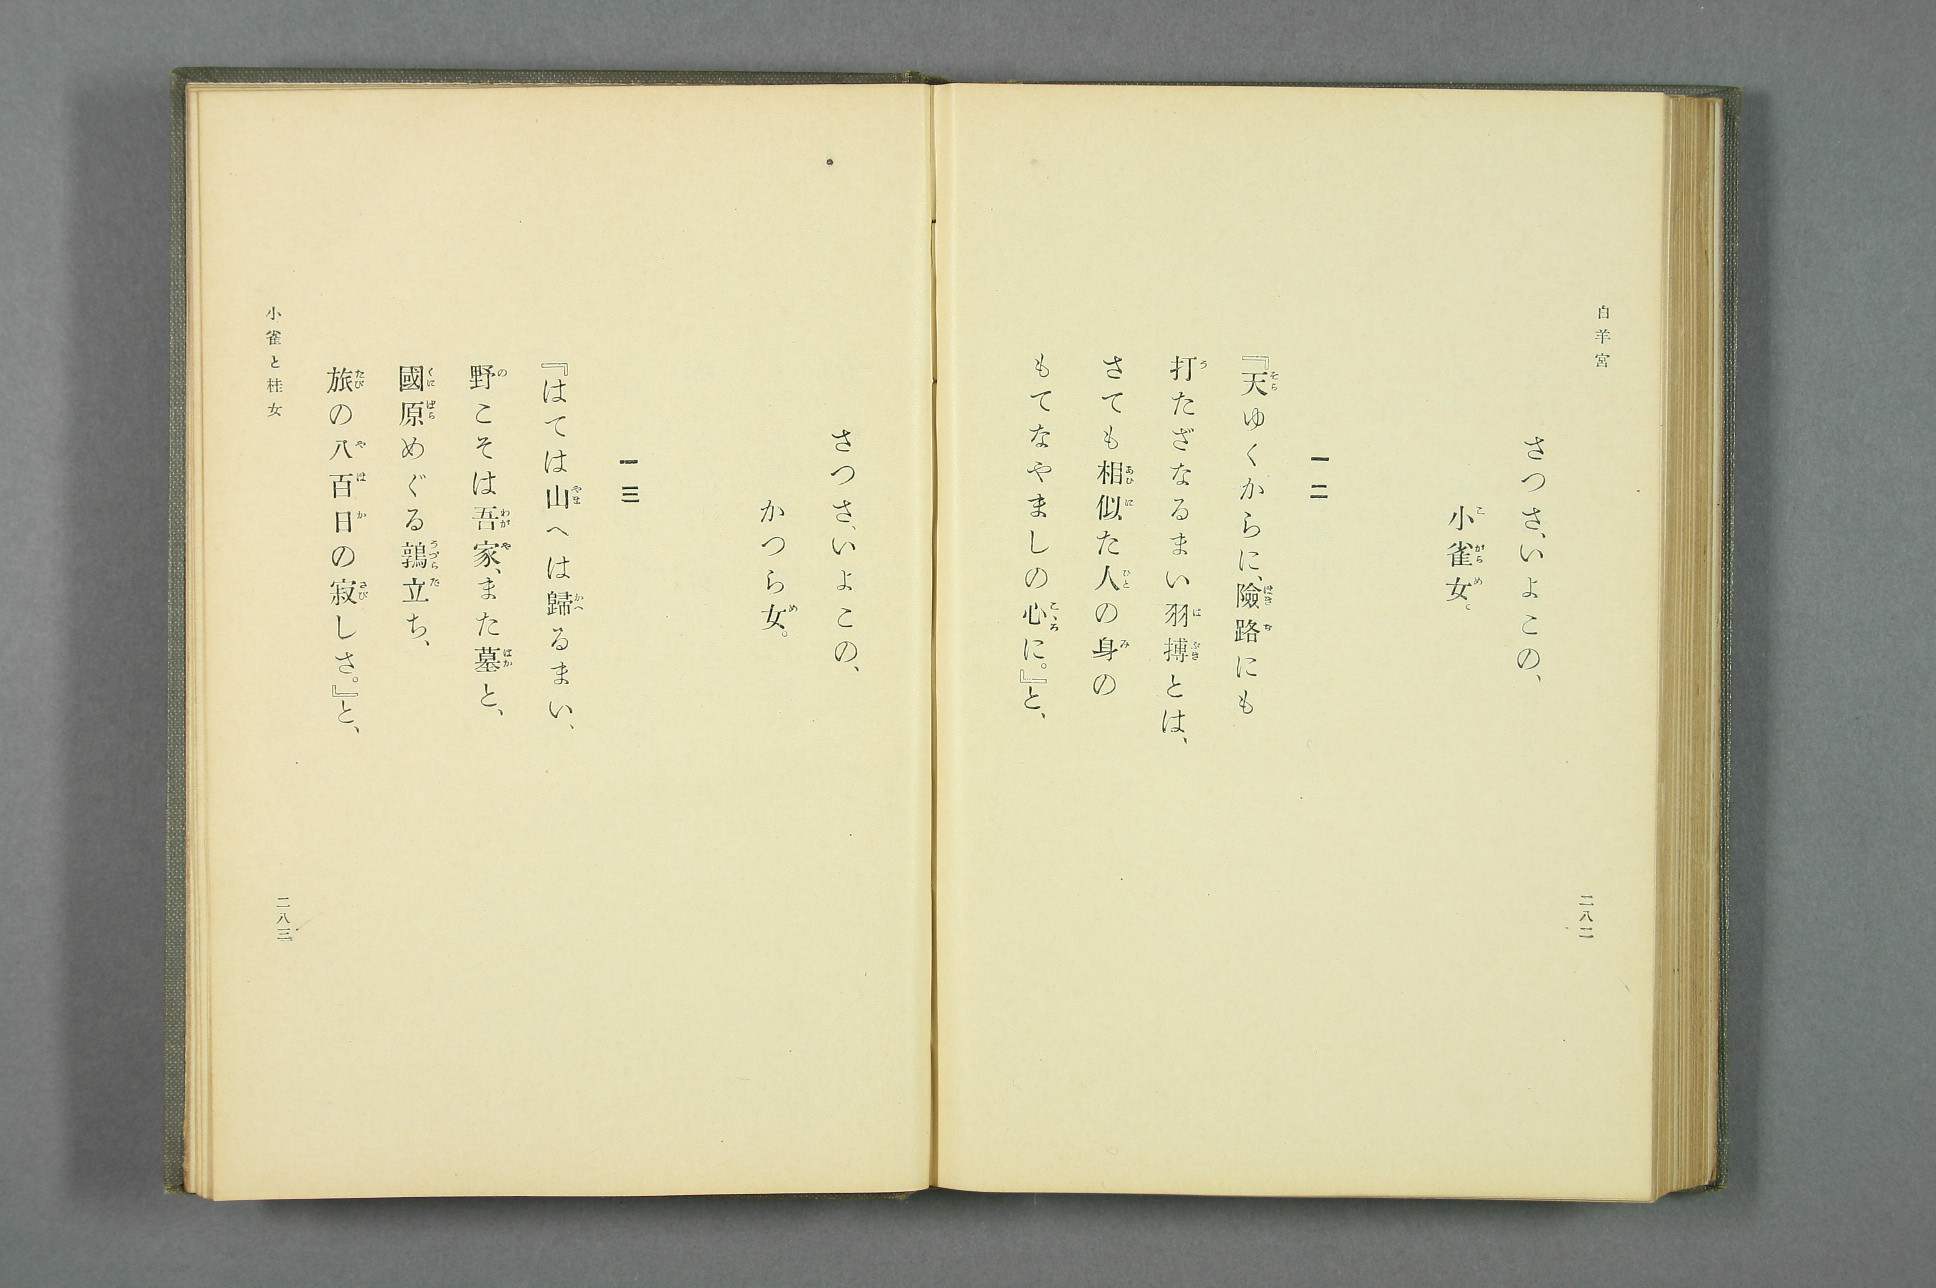 白羊宮
さつさ、いよこの、
小雀女。
一二
『天ゆくからに、險路にも
打たざなるまい羽搏とは、
さても相似た人の身の
もてなやましの心に。』と、
二八二
さつさ、いよこの、
かつら女。
一三
『はては山へは歸るまい、
野こそは吾家、また墓と、
國原めぐる鶉立ち、
旅の八百日の寂しさ。』と、
小雀と桂女
二八三